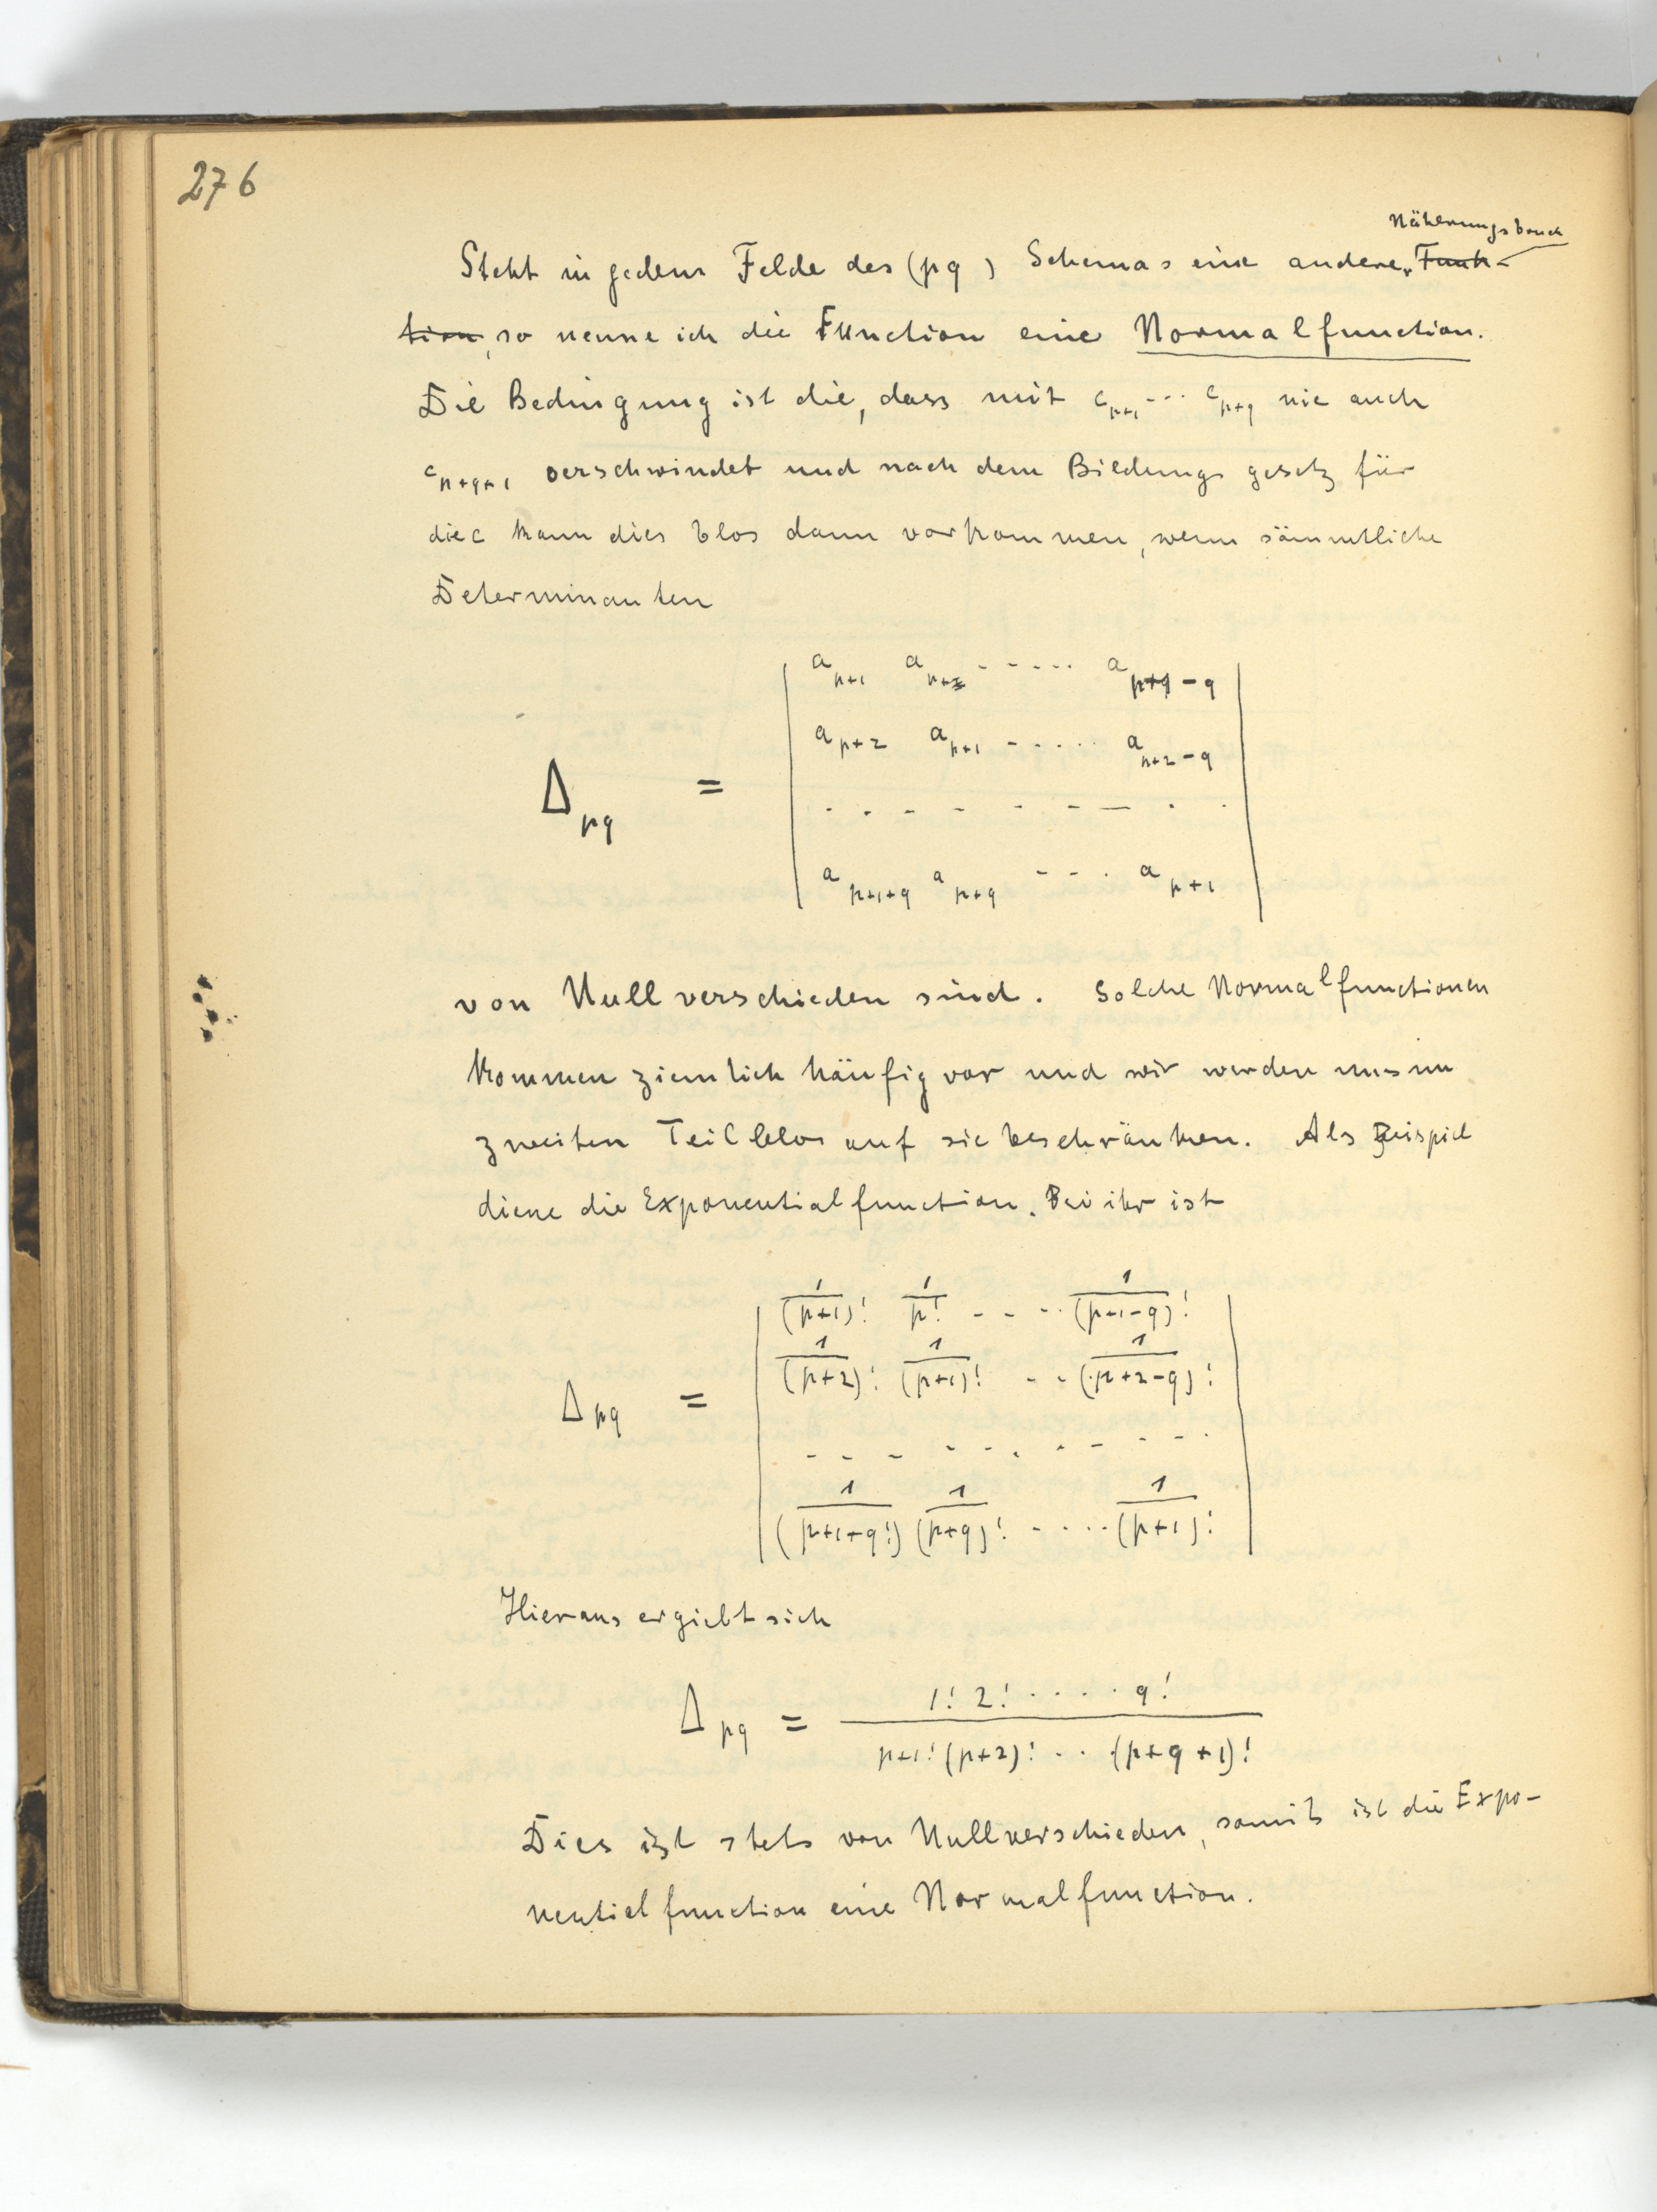 276
Näherungsbruch
Steht in jedem Felde des (pq) Schemas eine andere Funk-
tion, so nenne ich die Function eine Normalfunction.
Die Bedingung ist die, dass mit c_{p+1} ... c_{p+q} nie auch
c_{p+q+1} verschwindet und nach dem Bildungsgesetz für
die c kann dies blos dann vorkommen, wenn sämmtliche
Determinanten
a_{p+1} a ----- a_{p+1-q}
a_{p+2} a_{p+1} ----- a_{p+2-q}
Δ_{pq} =
a_{p+1+q} a_{p+q} --- a_{p+1}
von Null verschieden sind. Solche Normalfunctionen
kommen ziemlich häufig vor und wir werden uns im
zweiten Teil blos auf sie beschränken. Als Beispiel
diene die Exponentialfunction. Bei ihr ist
1/(p+1)! 1/p! ---- 1/(p+1-q)!
1/(p+2)! 1/(p+1)! --- 1/(p+2-q)!
Δ_{pq} =
1/(p+1+q!) 1/(p+q)! ---- 1/(p+1)!
Hieraus ergiebt sich
Δ_{pq} = 1! 2! ····· q! / p+1! (p+2)! ··· (p+q+1)!
Dies ist stets von Null verschieden, somit ist die Expo-
nentialfunction eine Normalfunction.